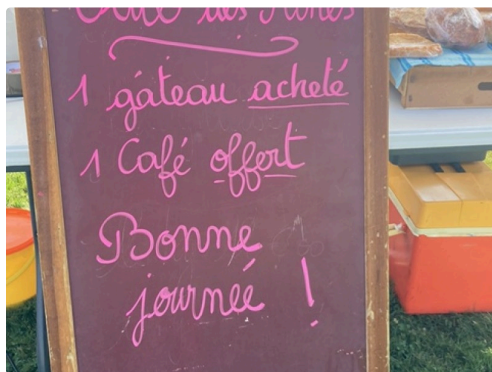 des
1 gâteau acheté
1 Café offert
Bonne
journéé !